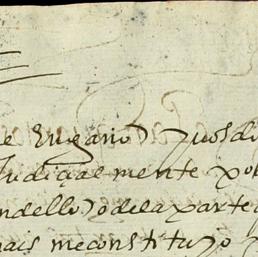 e Engano) Juos di
Judiçialmente por
ndello) o dela parte
mais meconstituyo